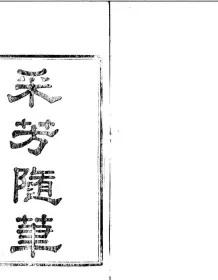 采芳隨筆